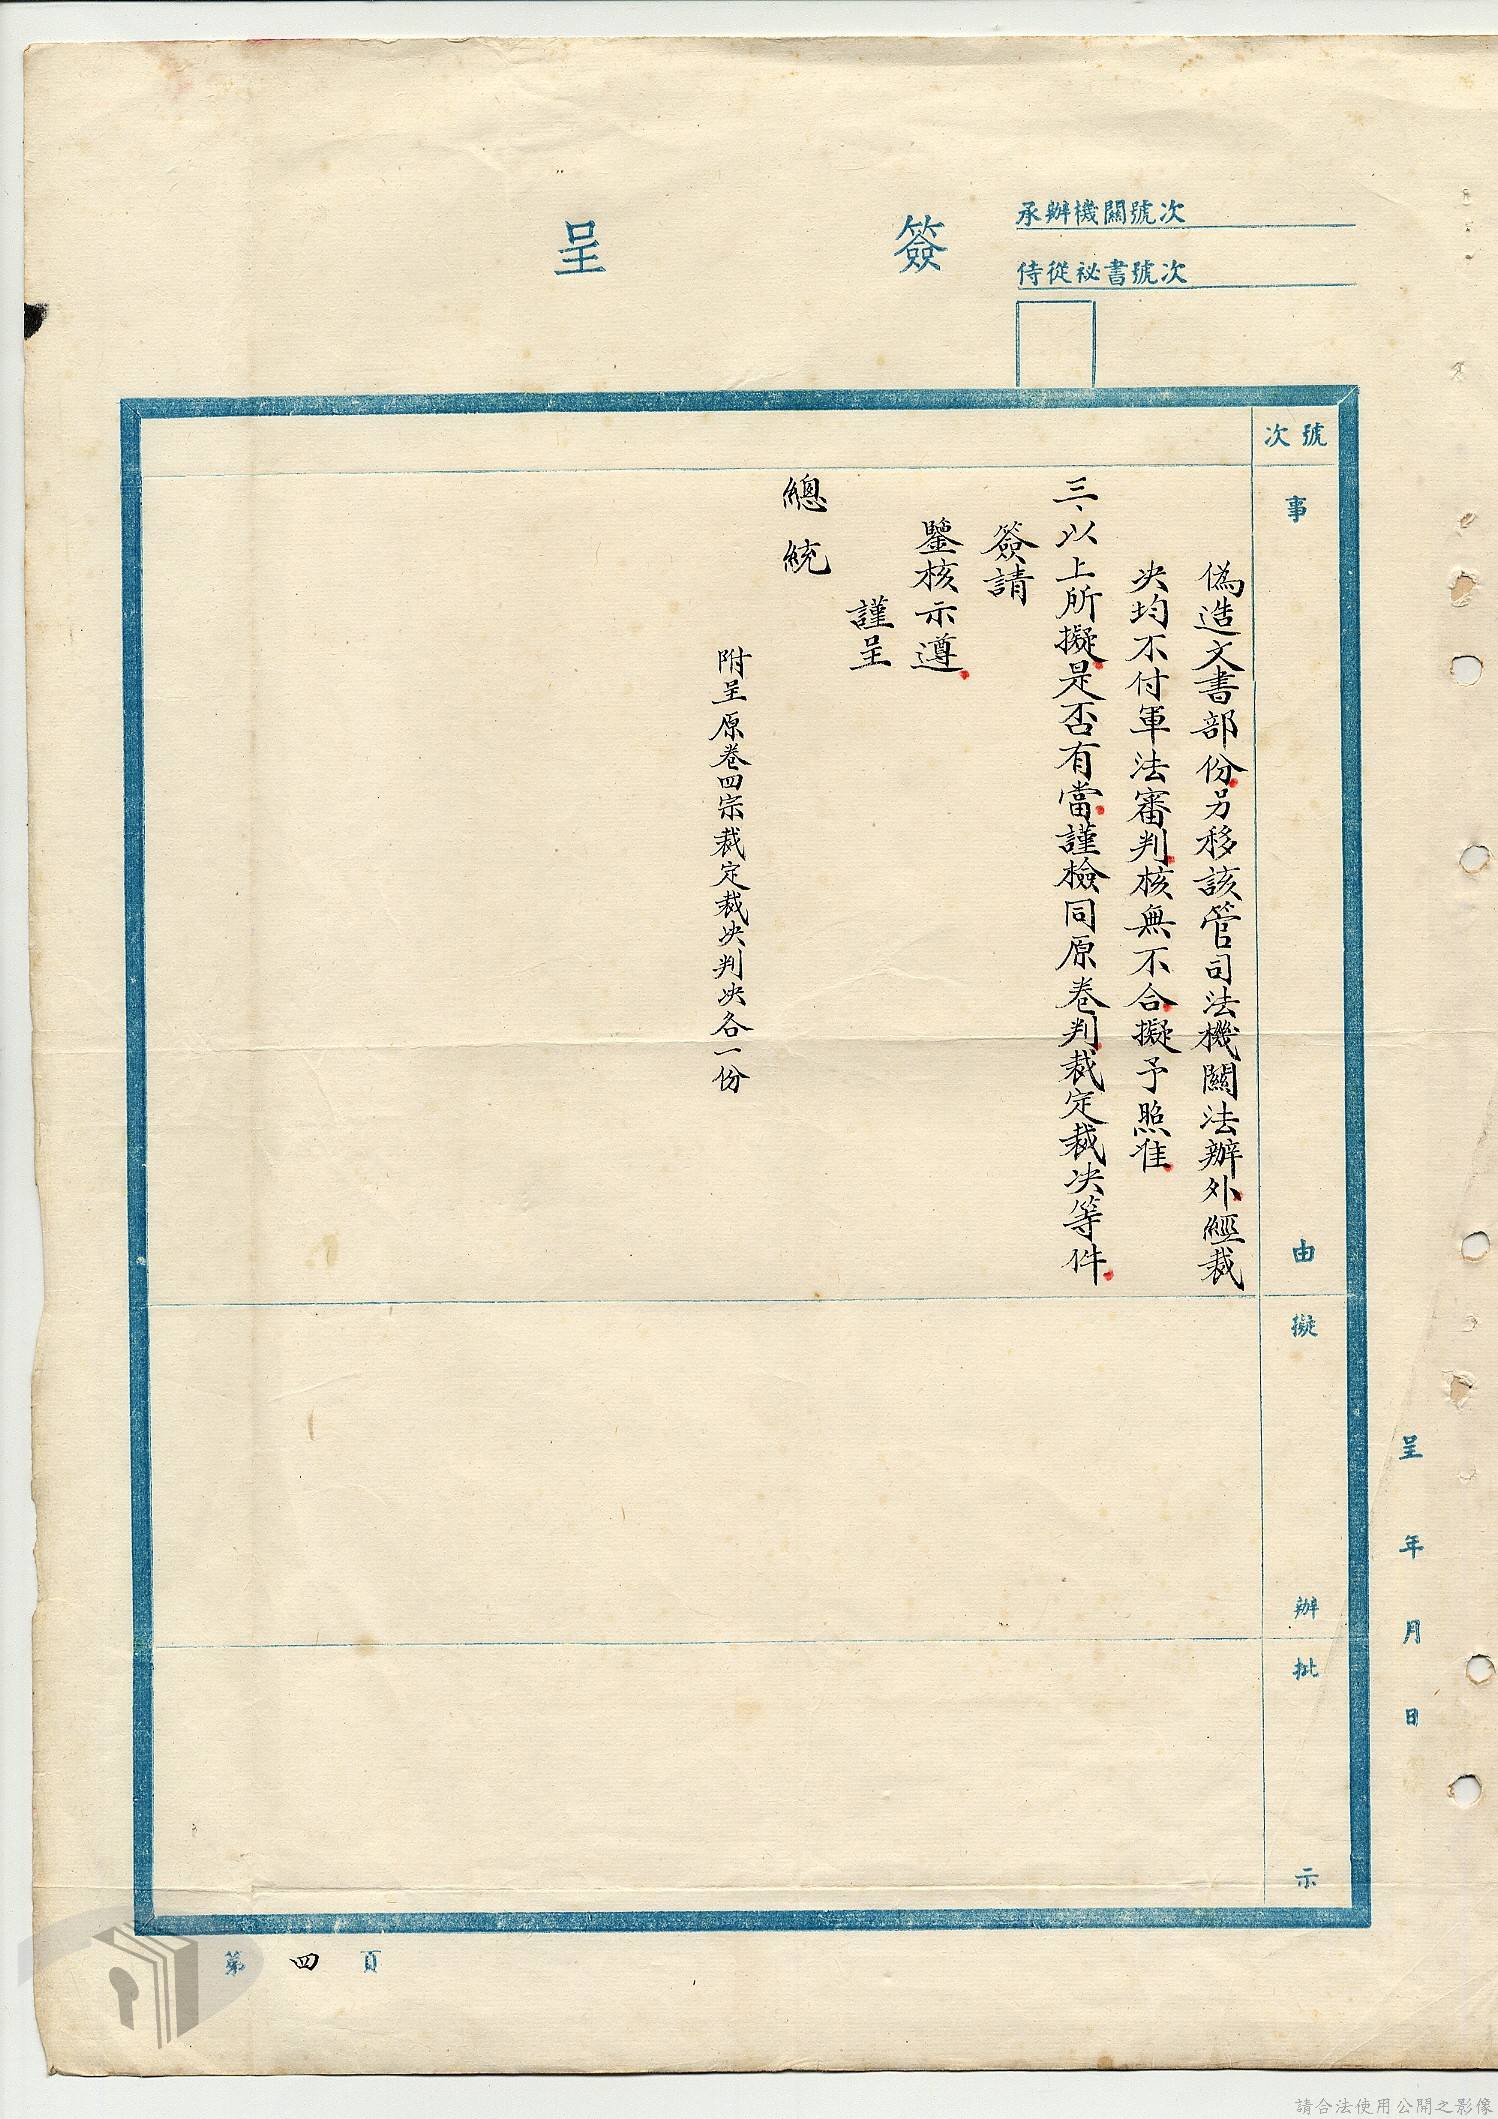 簽呈
承辦機關號次
侍從祕書號次
號次
事由
擬辦
批示
偽造文書部份另移該管司法機關法辦外經裁
決均不付軍法審判核無不合擬予照准
三、以上所擬是否有當謹檢同原卷判裁定裁決等件
簽請
鑒核示遵
謹呈
總統
附呈原卷四宗裁定裁決判決各一份
呈 年 月 日
第四頁
請合法使用公開之影像